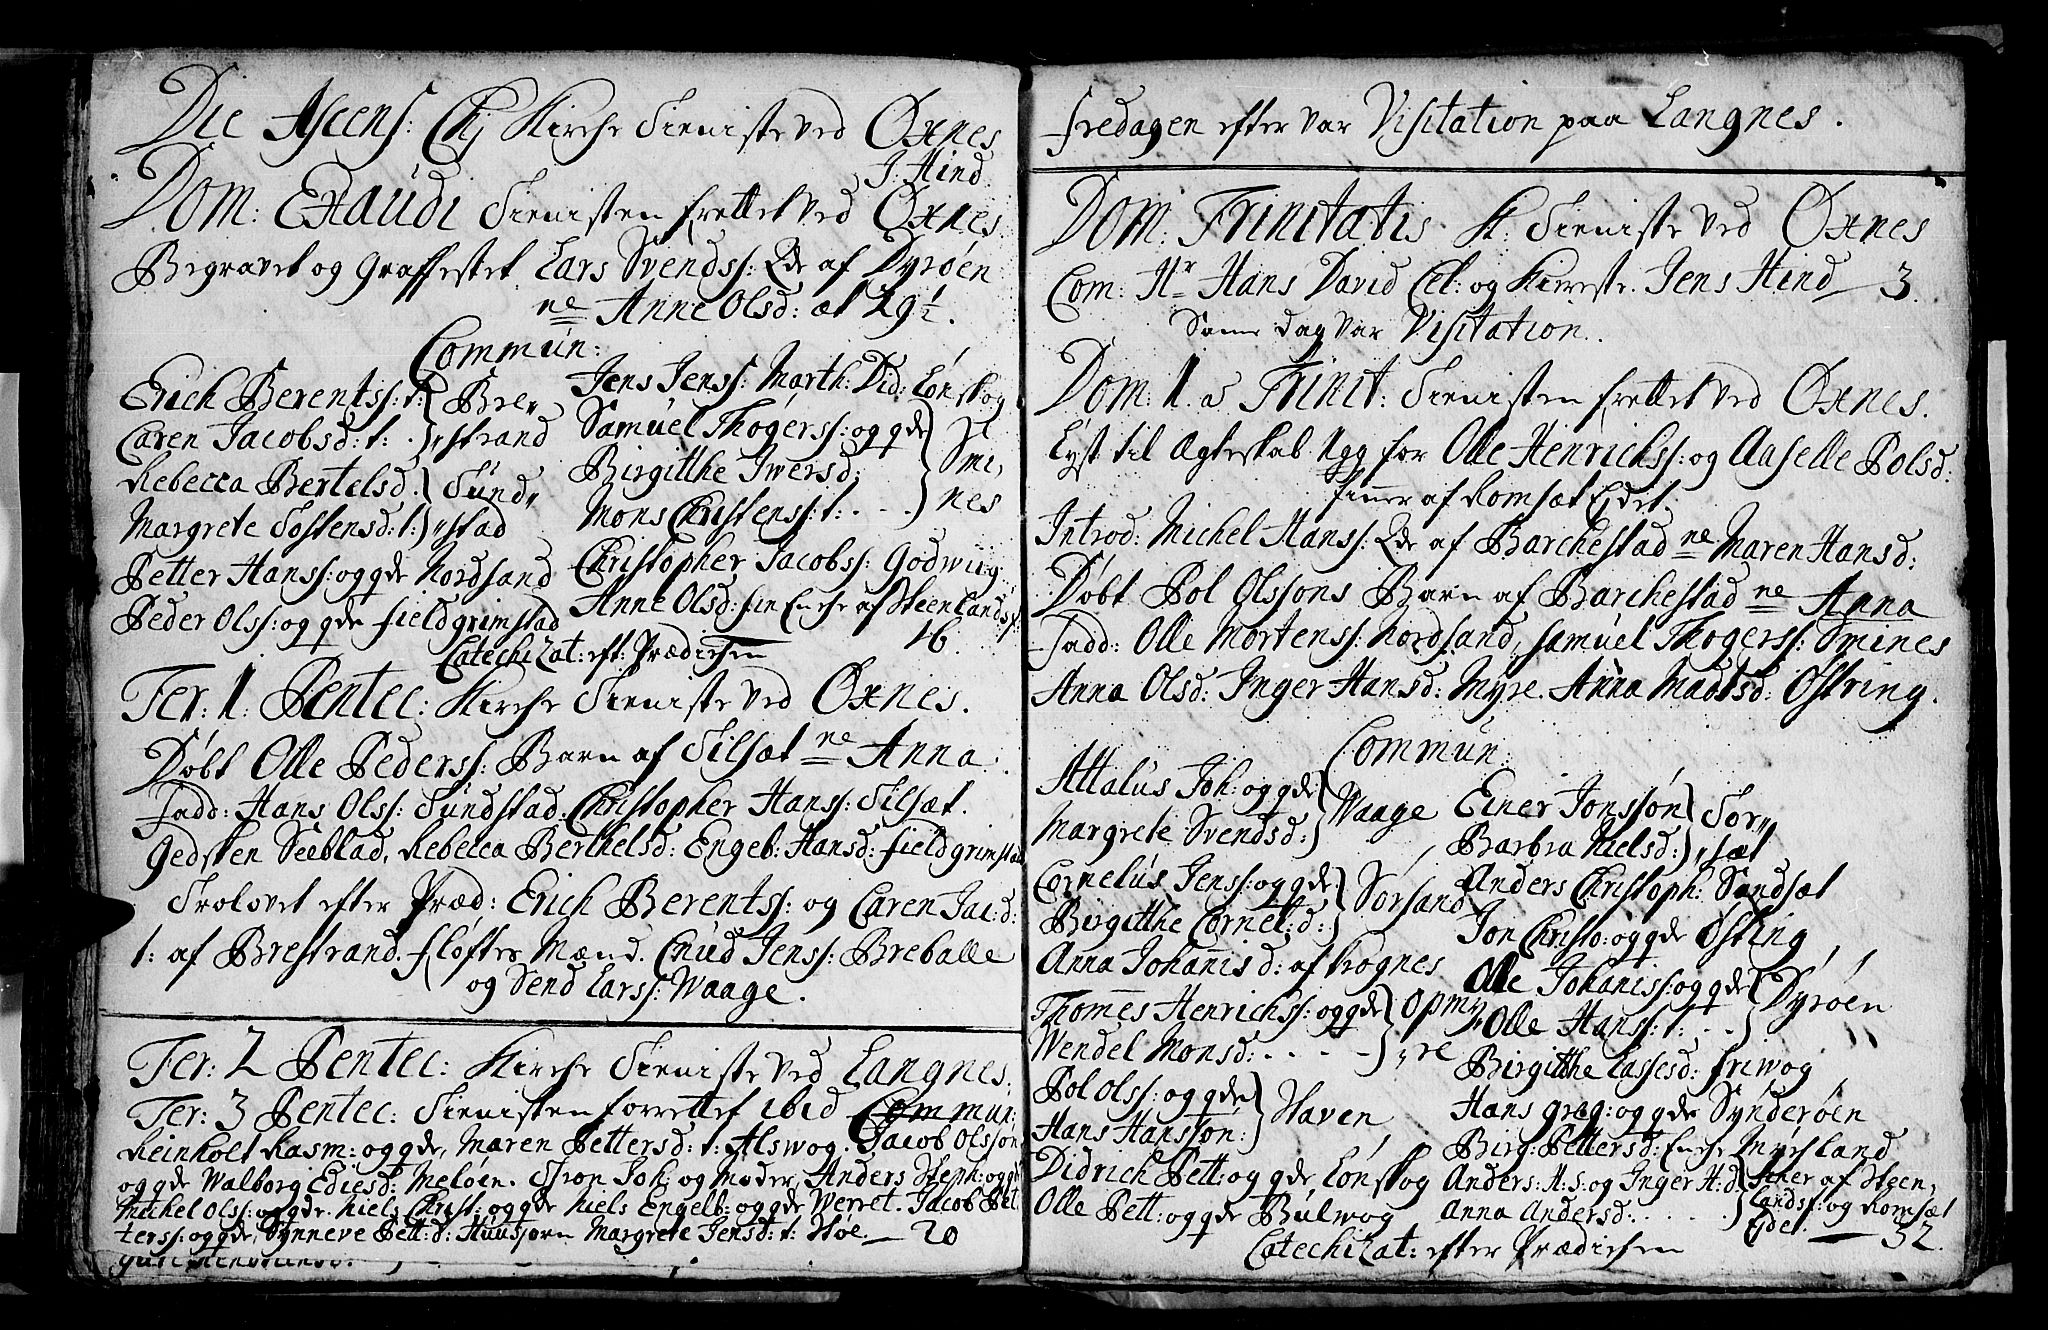 Die Ascens: Chj Kirche Tieniste ved Øxnes
J. Hind:
Dom: Exaudi Tienisten frettet ved Øxnes
Begravet og Graffestet Lars Svends: Ede af Dyrøen
ne Anne Olsd: æt 29½.
Commun:
Erich Berents: t: } Bre„
Caren Jacobsd: t: . } „strand
Rebecca Bertelsd. } Sund„
Margrete Tostensd: t: } „stad
Petter Hans: og qde Nordsand
Peder Ols: og qde Fieldgrimstad
Jens Jens: Marth: Did: Lønskog
Samuel Thogers: og qde }
Birgitthe Iwersd: } Smi„
Mons Christens: t: . - - } nes
Christopher Jacobs: Godwiig
Anne Olsd: fin Enche af Steenlands:
16.
Catechizat: eft: Prædichen
Fer: 1. Pentec: Kirche Tieniste ved Øxnes.
Døbt Olle Peders: Barn af Tilsæt ne Anna.
Fadd: Hans Ols: Sundstad. Christopher Hans: Tilsæt.
Gedsken Seeblad, Rebecca Berthelsd: Engeb: Hansd: Fieldgrimstad
Trolovet efter Præd: Erich Berents: og Caren Jac:d:
t: af Brestrand. Fløftes Mænd. Cnud Jens: Breballe
og Send Lars: Waage.
Fer: 2 Pentec: Kirche Tieniste ved Langnes.
Fer: 3 Pentec: Tienisten forrettet ibid Commun:
Reinholt Rasm: og qde, Maren Pettersd: t: Alswog. Jacob Olsson
og qde Walborg Ediesd: Meløen. Thron Joh: og Moder, Anders Steph: og qde
Michel Ols: og qde. Niels Christ: og qde Niels Engelb: og qde Werret. Jacob Pet
ters: og qde, Synneve Pett:d: Huusjorn Margrete Jensd: t: Høe. — 20
Fredagen efter var Visitation paa Langnes.
Dom: Trinitatis K: Tieniste ved Øxnes
Com: Hr Hans David Cel: og Hustr. Jens Hind — 3.
Same dag var Visitation.
Dom: 1. a Trinit: Tienisten frettet ved Øxnes.
Lyst til Egteskab 1gg for Olle Henrichs: og Aaselle Polsd:
Finner af Romsæt Ejdet.
Introd: Michel Hans: Ede af Barchestad ne Maren Hansd:
Døbt Pol Olssons Barn af Barchestad ne Anna
Fadd: Olle Mortens: Nordsand, Samuel Thogers: Smines
Anna Olsd: Inger Hansd: Myre. Anna Madtsd: Østring.
Commun:
Attalus Joh: og qde }
Margrete Svendsd: } Waage
Cornelus Jens: og qde }
Birgitthe Cornel:d: } Sørsand
Anna Johanisd: af Skognes
Thomes Henrichs: og qde } Opmy„
Wendel Monsd: . - - - } „re
Pol Ols: og qde }
Hans Hanssøn: } Haven
Didrich Pett: og qde Lønskog
Olle Pett: og qde Bulwog
Einer Jonssøn } Tor„
Barbra Nielsd: } „sæt
Anders Christoph: Sandsæt
Jon Christo: og qde Østing
Olle Johanis: og qde }
Olle Hans: t: . - - } Dyrøen
Birgitthe Lassesd: Friwog
Hans Greg: og qde Synderøen
Birg: Pettersd: Enche Myrland
Anders: H:s: og Inger H:d: } Finer af Steen„
Anna Andersd: . . . . . } lands: og Romsæt
Ejdet. — 32.
Catechizat: efter Prædichen